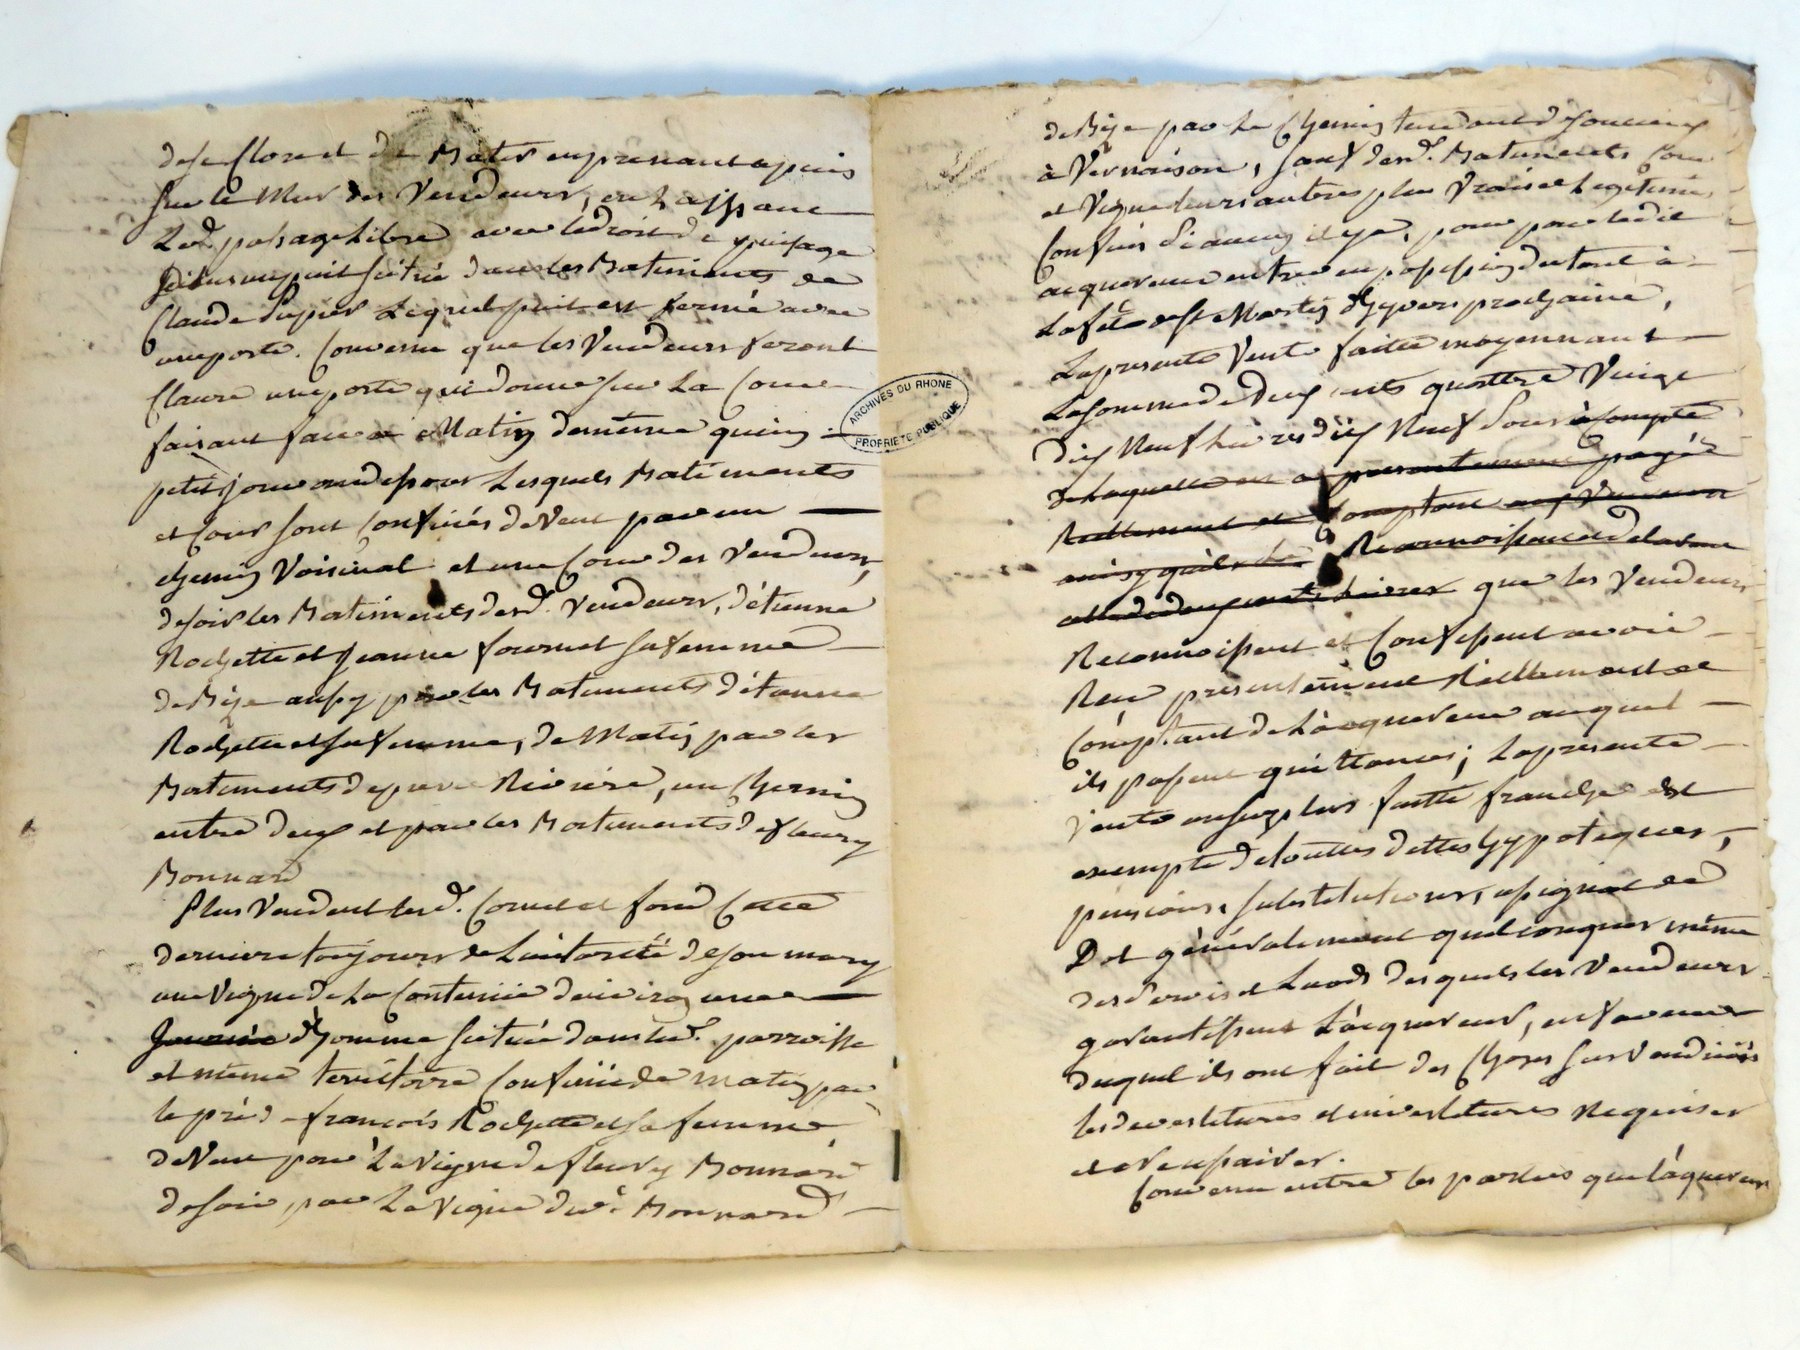 de se clore et de Bâtir en prenant apuis
sur le Mur des Vendeurs, en Laissant
Led. passage Libre avec le droit de puisage
dans un puit situé dans les Batiments de
Claude Pupier Lequel puit est fermé avec
une porte. Convenu que les Vendeurs feront
Clorre une porte qui donne sur La Cour
faisant face a Matin de même qu'un
petit jour au dessous Lesquels Batiments
et Cour sont Confinés de Vent par un
chemin Voisinal et une Cour des Vendeurs,
de soir les Batiments desd. Vendeurs, d'étienne
Rochette et Jeanne fournet sa femme
de Bize aussy par les Batiments d'étienne
Rochette et sa femme, de Matin par les
Batiments de pierre Rivière, un Chemin
entre deux et par les Batiments de fleury
Bonnard
Plus Vendent lesd. Cornet et fond Cette
derniere toujours de L'autorité de son mary
une Vigne de La Contenue d'environ une
Journée d'homme située dans lad. parroisse
et même territoire Confinée de matin par
le pré de françois Rochette et sa femme
de Vent par La Vigne de fleury Bonnard
de soir, par La Vigne dud. Bonnard
ARCHIVES DU RHONE
PROPRIETE PUBLIQUE
de Bize par Le Chemin tendant d'
à Vernaison, sauf desd. Batiments Cour
et Vigne leurs autres plus Vrais et Legitimes
Confins si aucuns il y a, pour par ledit
acquereur entrer en possession du tout à
La fête de St Martin d'hyver prochaine,
La presente Vente faitte moyennant
La somme de Deux cents quattre Vingt
Dix Neuf Livres dix Neuf Sous à compte
de Laquelle en a presentement payé
Reellement et Comptant aux Vendeurs
ainsy qu'ils Le Reconnoissent
celle de deux cents Livres que les Vendeurs
Reconnoissent et Confessent avoir
Reçu presentement Réellement et
Comptant de L'acquereur auquel
ils passent quittance; La presente
Vente au surplus faitte franche et
exempte de touttes dettes hypoteques,
pensions, substitutions, assignat de
Dot généralement quelconques même
des Servis et Laods desquels les Vendeurs
garantissent L'acquereur, en faveur
duquel ils ont fait des Choses sus Vendües
les devestitures et investitures Requises
et
Convenu entre les parties que l'aquereur